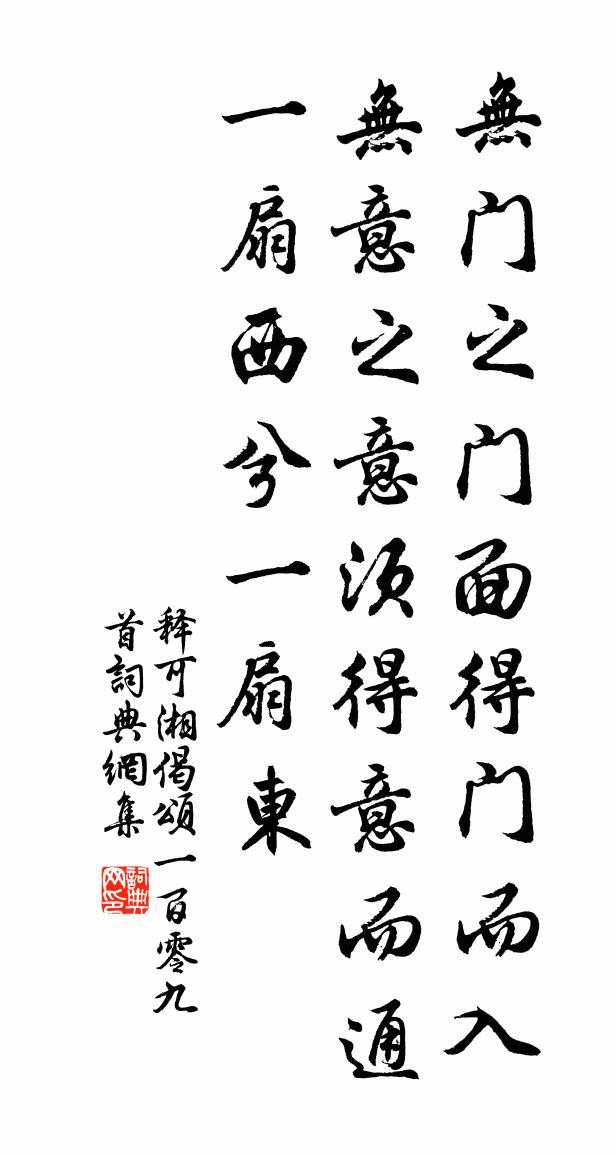 無門之門面得門而入
無意之意須得意而通
一扇西兮一扇東
释可湘偈頌一百零九
首詞典網集
詞典网印